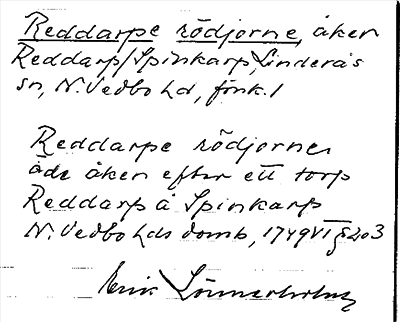 Reddarpe rödjorne, åken
Reddarp/Spinkarp, Linderås
sn, N. Vedbo hd, fönk. 1
Reddarpe rödjorne
öde åken efter ett torp
Reddarp å Spinkarp
N. Vedbo hds domb, 1749 VI § 203
Erik Lönnerholm